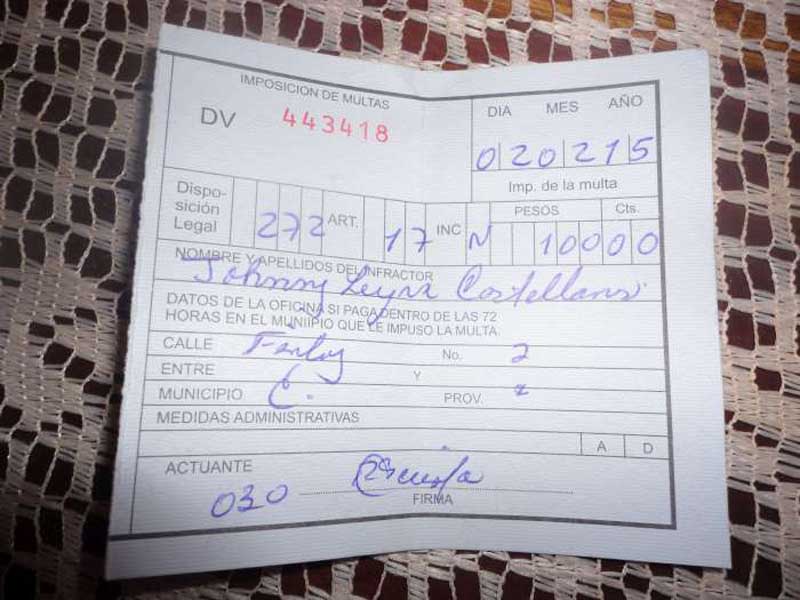 IMPOSICION DE MULTAS
DV 443418
DIA MES AÑO
02 02 15
Imp. de la multa
Disposición Legal 272 ART. 17 INC N PESOS 100 Cts. 00
NOMBRE Y APELLIDOS DEL INFRACTOR
Johnny Leyva Castellano
DATOS DE LA OFICINA SI PAGA DENTRO DE LAS 72
HORAS EN EL MUNIIPIO QUE LE IMPUSO LA MULTA.
CALLE No. 2
ENTRE Y
MUNICIPIO C. PROV.
MEDIDAS ADMINISTRATIVAS
A D
ACTUANTE
030
FIRMA